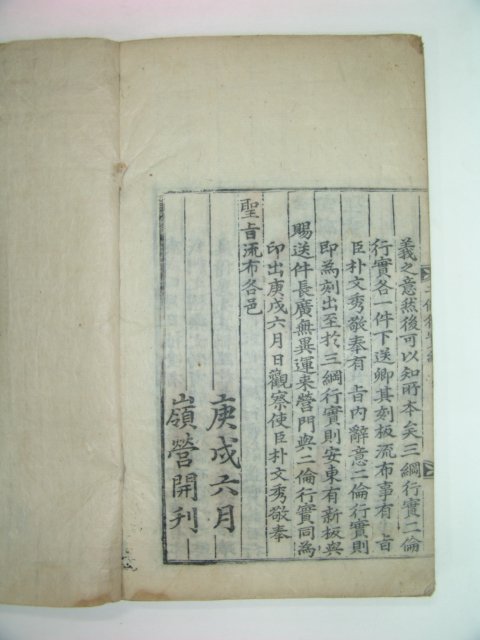 義之意然後可以知所本矣三綱行實二倫
行實各一件下送卿其刻板流布事有 旨
臣朴文秀敬奉有 旨內辭意二倫行實則
即為刻出至於三綱行實則安東有新板與
賜送件長廣無異運來營門與二倫行實同為
印出庚戌六月日觀察使臣朴文秀敬奉
聖旨流布各邑
庚戌六月
嶺營開刋